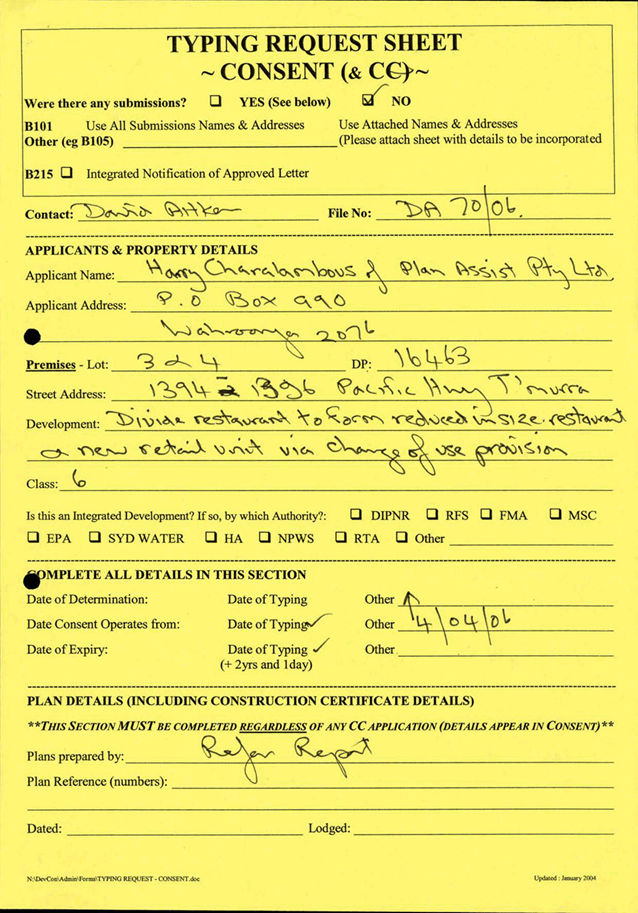 TYPING REQUEST SHEET
~ CONSENT (& CC) ~
Were there any submissions? ☐ YES (See below) ☑ NO
B101 Use All Submissions Names & Addresses Use Attached Names & Addresses
Other (eg B105) (Please attach sheet with details to be incorporated
B215 ☐ Integrated Notification of Approved Letter
Contact: David Aitken File No: DA 70/06.
APPLICANTS & PROPERTY DETAILS
Applicant Name: Harry Charalambous of Plan Assist Pty Ltd.
Applicant Address: P.O Box 990
Wahroonga 2076
Premises - Lot: 3 & 4 DP: 16463
Street Address: 1394 - 1396 Pacific Hwy T'murra
Development: Divide restaurant to form reduced in size restaurant
& new retail unit via change of use provision
Class: 6
Is this an Integrated Development? If so, by which Authority?: ☐ DIPNR ☐ RFS ☐ FMA ☐ MSC
☐ EPA ☐ SYD WATER ☐ HA ☐ NPWS ☐ RTA ☐ Other
COMPLETE ALL DETAILS IN THIS SECTION
Date of Determination: Date of Typing Other
Date Consent Operates from: Date of Typing ✓ Other 4/04/06
Date of Expiry: Date of Typing ✓ Other
(+ 2yrs and 1day)
PLAN DETAILS (INCLUDING CONSTRUCTION CERTIFICATE DETAILS)
**THIS SECTION MUST BE COMPLETED REGARDLESS OF ANY CC APPLICATION (DETAILS APPEAR IN CONSENT)**
Plans prepared by: Refer Report
Plan Reference (numbers):
Dated: Lodged:
N:\DevCon\Admin\Forms\TYPING REQUEST - CONSENT.doc Updated : January 2004